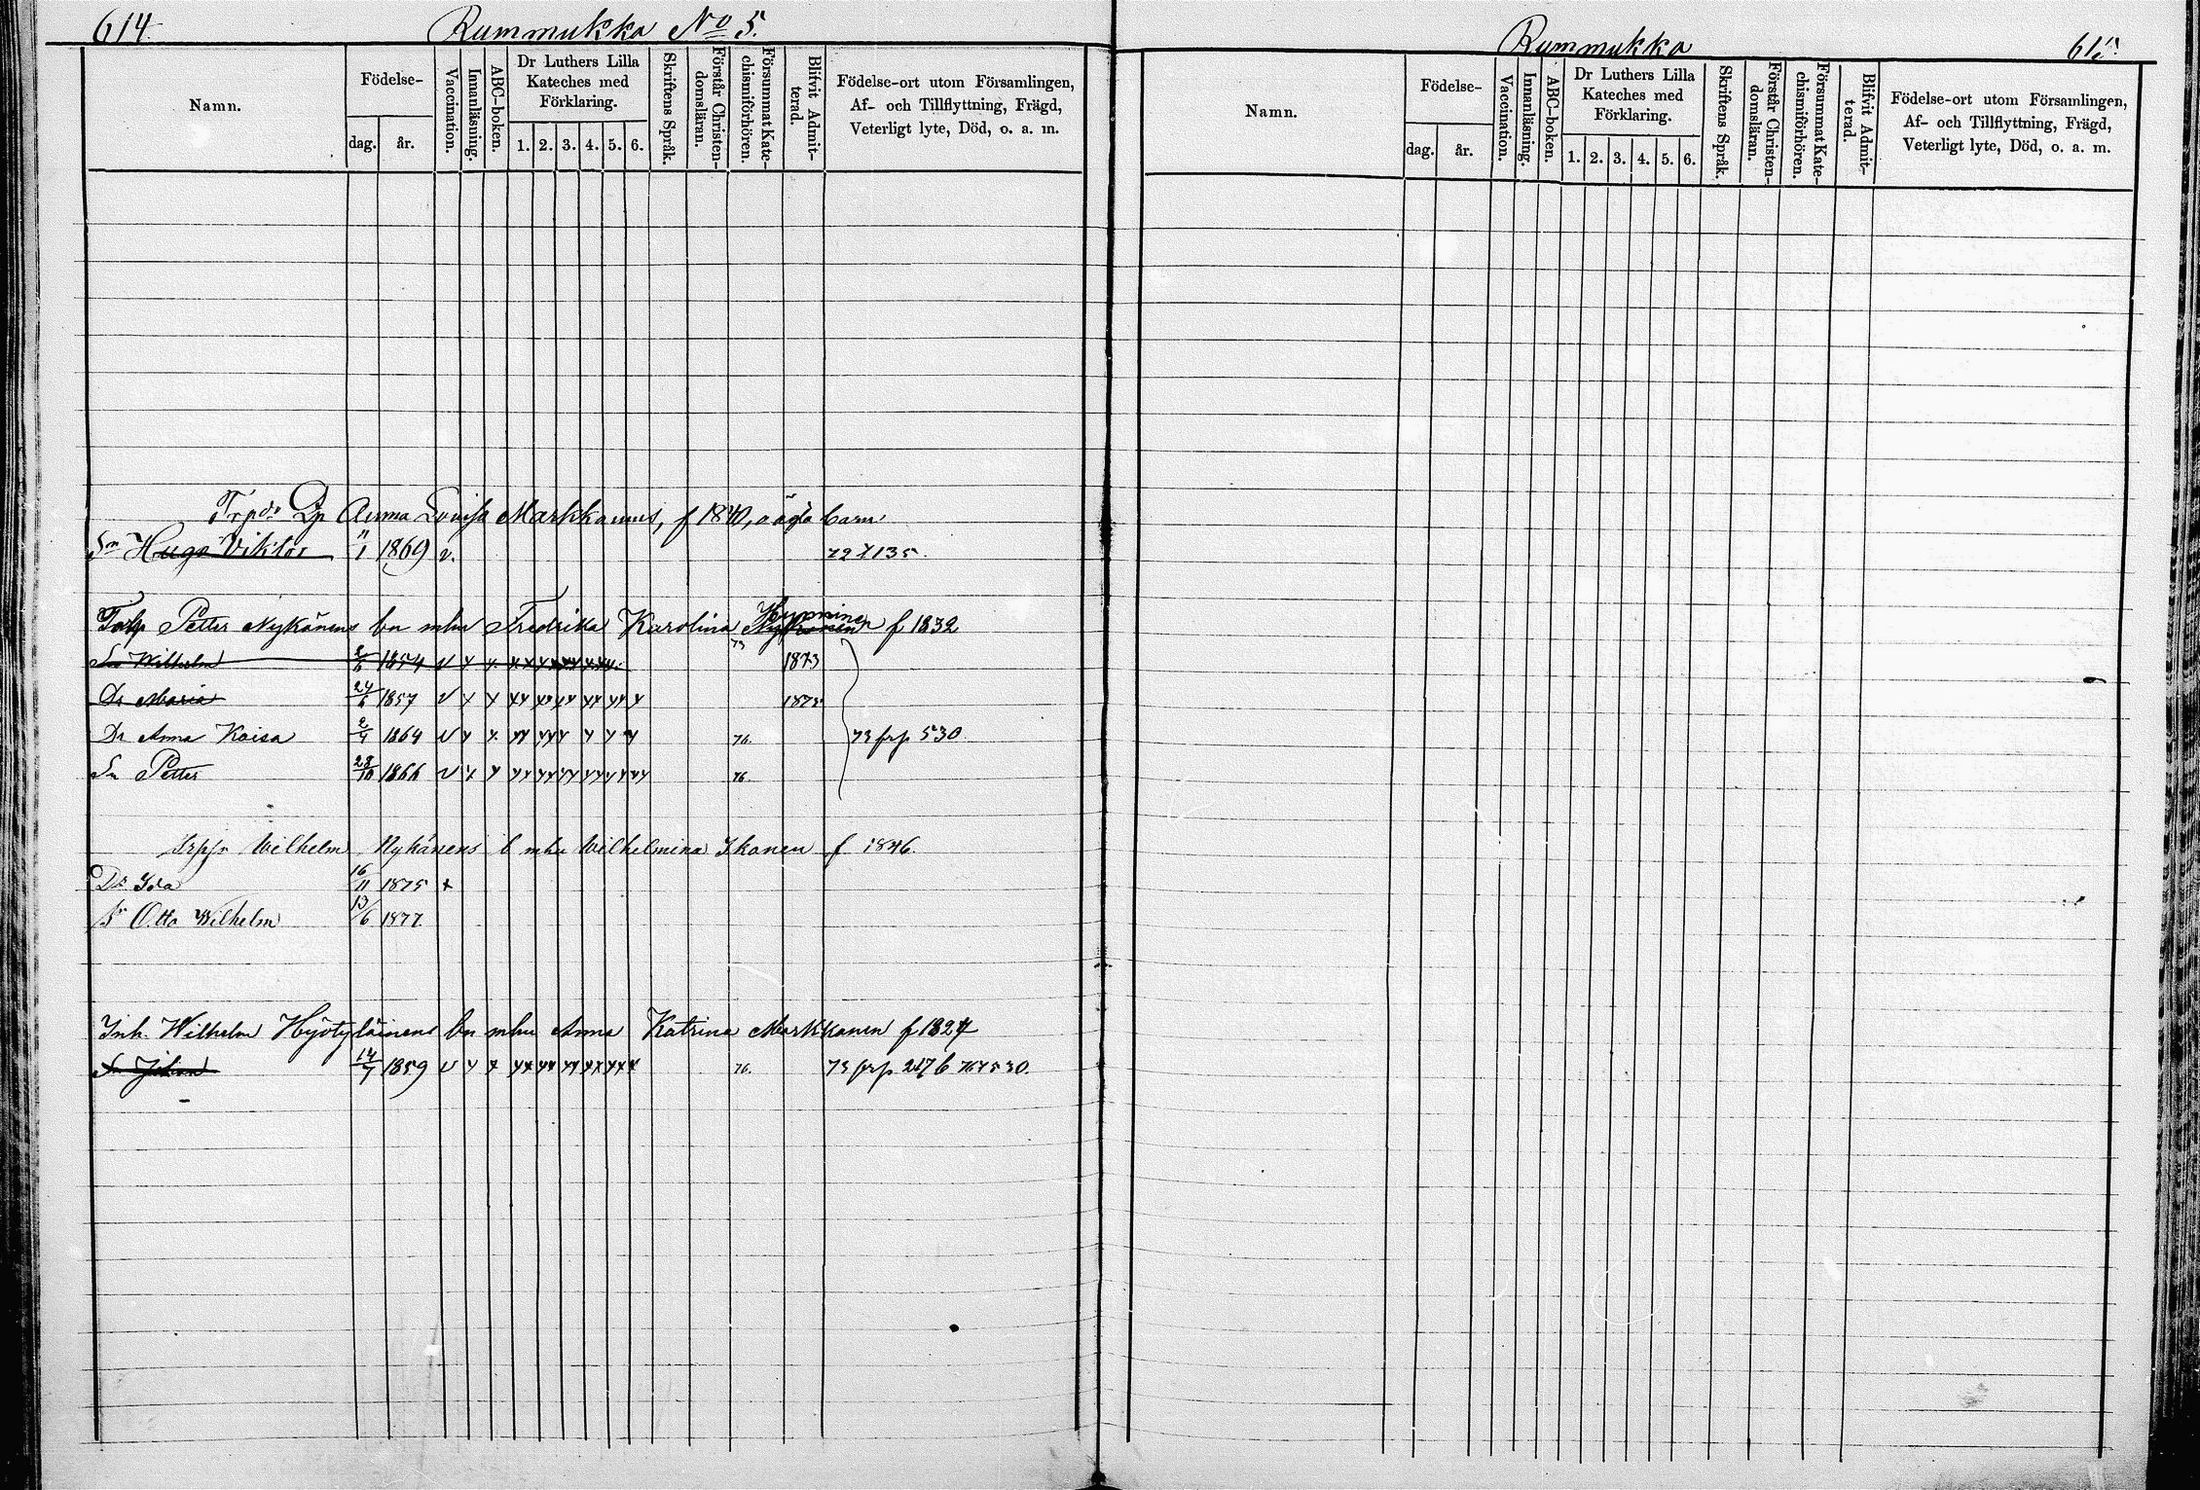 614. Rummukka No 5.
Namn.
Födelse-
dag. år.
Vaccination.
Innanläsning.
ABC-boken.
Dr Luthers Lilla
Kateches med
Förklaring.
1. 2. 3. 4. 5. 6.
Skriftens Språk.
Förstår Christen-
domsläran.
Försummat Kate-
chismiförhören.
Blifvit Admit-
terad.
Födelse-ort utom Församlingen,
Af- och Tillflyttning, Frägd,
Veterligt lyte, Död, o. a. m.
Anna Lovisa Markkanens, f 1840, oägta barn
Sn Hugo Viktor 11/1 1869 v. 72 f 135.
Petter Nykänens bn mhu Fredrika Karolina Hynninen f 1832
Sn Wilhelm 1854 v x x 73 1873
Dr Maria 24/6 1857 v x x
Dr Anna Kaisa 1864 v x x 76. 73 frp 530
Sn Petter 28/10 1866 v x x 76.
Wilhelm Nykänens b mhu Wilhelmina Ikonen f 1846.
Dr Ida 16/11 1875 x
Sn Otto Wilhelm 13/6 1877
Inh. Wilhelm Hyötyläinens bn mhu Anna Katrina Markkanen f 1824
Sn Johan 14/7 1859 v x x 76. 73 frp 217 b 76 f 530.
Rummukka 615.
Namn.
Födelse-
dag. år.
Vaccination.
Innanläsning.
ABC-boken.
Dr Luthers Lilla
Kateches med
Förklaring.
1. 2. 3. 4. 5. 6.
Skriftens Språk.
Förstår Christen-
domsläran.
Försummat Kate-
chismiförhören.
Blifvit Admit-
terad.
Födelse-ort utom Församlingen,
Af- och Tillflyttning, Frägd,
Veterligt lyte, Död, o. a. m.